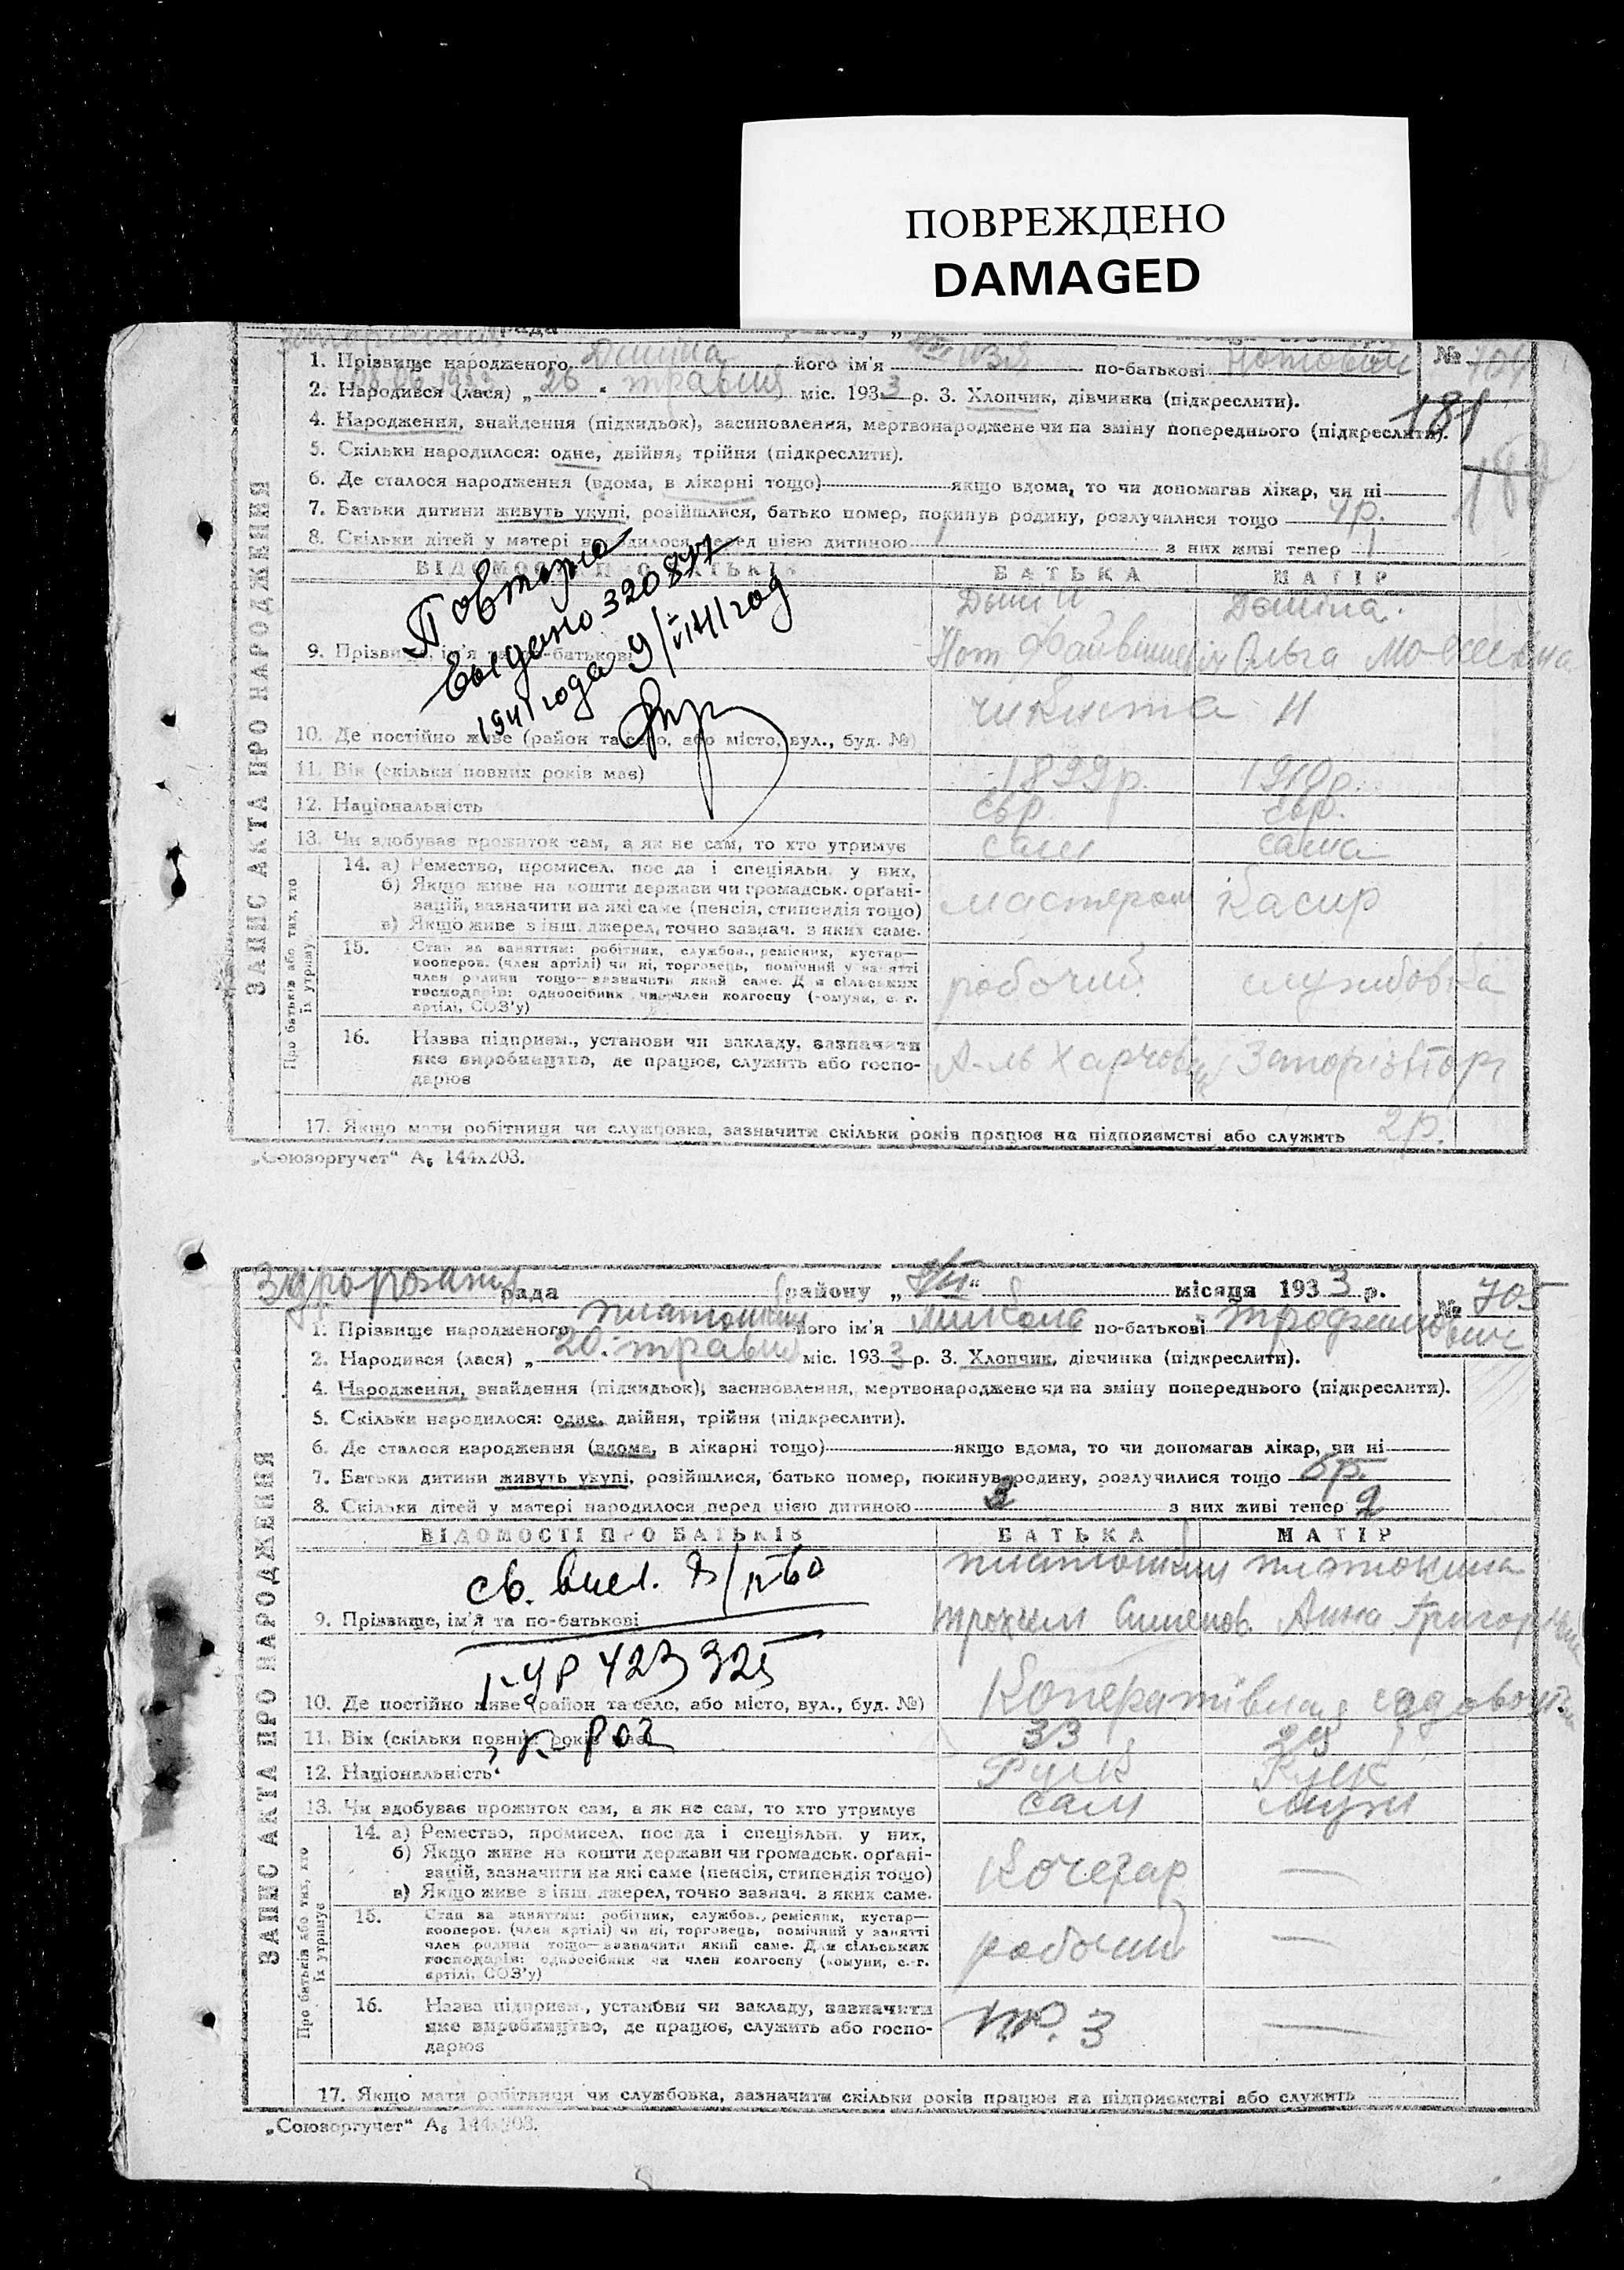 ПОВРЕЖДЕНО
DAMAGED
1. Прізвище народженого його ім'я по-батькові № 704
2. Народився (лася) „ 26 “ травня міс. 1933 р. 3. Хлопчик, дівчинка (підкреслити).
181
4. Народження, знайдення (підкидьок), засиновлення, мертвонароджене чи на зміну попереднього (підкреслити).
5. Скільки народилося: одне, двійня, трійня (підкреслити).
6. Де сталося народження (вдома, в лікарні тощо) якщо вдома, то чи допомагав лікар, чи ні
7. Батьки дитини живуть укупі, розійшлися, батько помер, покинув родину, розлучилися тощо 4р.
8. Скільки дітей у матері народилося перед цією дитиною 1 з них живі тепер 1
ЗАПИС АКТА ПРО НАРОДЖЕННЯ
ВІДОМОСТІ ПРО БАТЬКІВ БАТЬКА МАТІР
Повторно
выдано 320877
1941 года 9/VI 41 год
9. Прізвище, ім'я та по-батькові Нот Ольга
10. Де постійно живе (район та село, або місто, вул., буд. №) 11
11. Вік (скільки повних років має) 1899р. 1910р.
12. Національність євр. євр.
13. Чи здобуває прожиток сам, а як не сам, то хто утримує сам сама
Про батьків або тих, хто їх утримує
14. а) Ремество, промисел, посада і спеціяльн. у них,
б) Якщо живе на кошти держави чи громадськ. органі-
зацій, зазначити на які саме (пенсія, стипендія тощо) мастером касир
в) Якщо живе з інш. джерел, точно зазнач. з яких саме.
15. Стан за заняттям: робітник, службов., ремісник, кустар—
кооперов. (член артілі) чи ні, торговець, помічний у занятті
член родини тощо—зазначити який саме. Для сільських
господарів: одноосібник чи член колгоспу (комуни, с.-г.
артілі, СОЗ'у) робочий службовка
16. Назва підприєм., установи чи закладу, зазначити
яке виробництво, де працює, служить або госпо-
дарює
17. Якщо мати робітниця чи службовка, зазначити скільки років працює на підприємстві або служить 2р.
„Союзоргучет“ А₆ 144х203.
рада району „ “ місяця 1933 р.
№ 705
1. Прізвище народженого його ім'я Микола по-батькові
2. Народився (лася) „ 20. травня міс. 1933 р. 3. Хлопчик, дівчинка (підкреслити).
4. Народження, знайдення (підкидьок), засиновлення, мертвонароджене чи на зміну попереднього (підкреслити).
5. Скільки народилося: одне, двійня, трійня (підкреслити).
6. Де сталося народження (вдома, в лікарні тощо) якщо вдома, то чи допомагав лікар, чи ні
7. Батьки дитини живуть укупі, розійшлися, батько помер, покинув родину, розлучилися тощо
8. Скільки дітей у матері народилося перед цією дитиною з них живі тепер 2
ЗАПИС АКТА ПРО НАРОДЖЕННЯ
ВІДОМОСТІ ПРО БАТЬКІВ БАТЬКА МАТІР
9. Прізвище, ім'я та по-батькові Анна
423925
10. Де постійно живе (район та село, або місто, вул., буд. №)
11. Вік (скільки повних років має) 33 29
12. Національність Руск Руск
13. Чи здобуває прожиток сам, а як не сам, то хто утримує сам муж
Про батьків або тих, хто їх утримує
14. а) Ремество, промисел, посада і спеціяльн. у них,
б) Якщо живе на кошти держави чи громадськ. органі-
зацій, зазначити на які саме (пенсія, стипендія тощо) Кочегар —
в) Якщо живе з інш. джерел, точно зазнач. з яких саме.
15. Стан за заняттям: робітник, службов., ремісник, кустар—
кооперов. (член артілі) чи ні, торговець, помічний у занятті
член родини тощо—зазначити який саме. Для сільських
господарів: одноосібник чи член колгоспу (комуни, с.-г.
артілі, СОЗ'у) робочий —
16. Назва підприєм., установи чи закладу, зазначити
яке виробництво, де працює, служить або госпо-
дарює
17. Якщо мати робітниця чи службовка, зазначити скільки років працює на підприємстві або служить
„Союзоргучет“ А₆ 144х203.